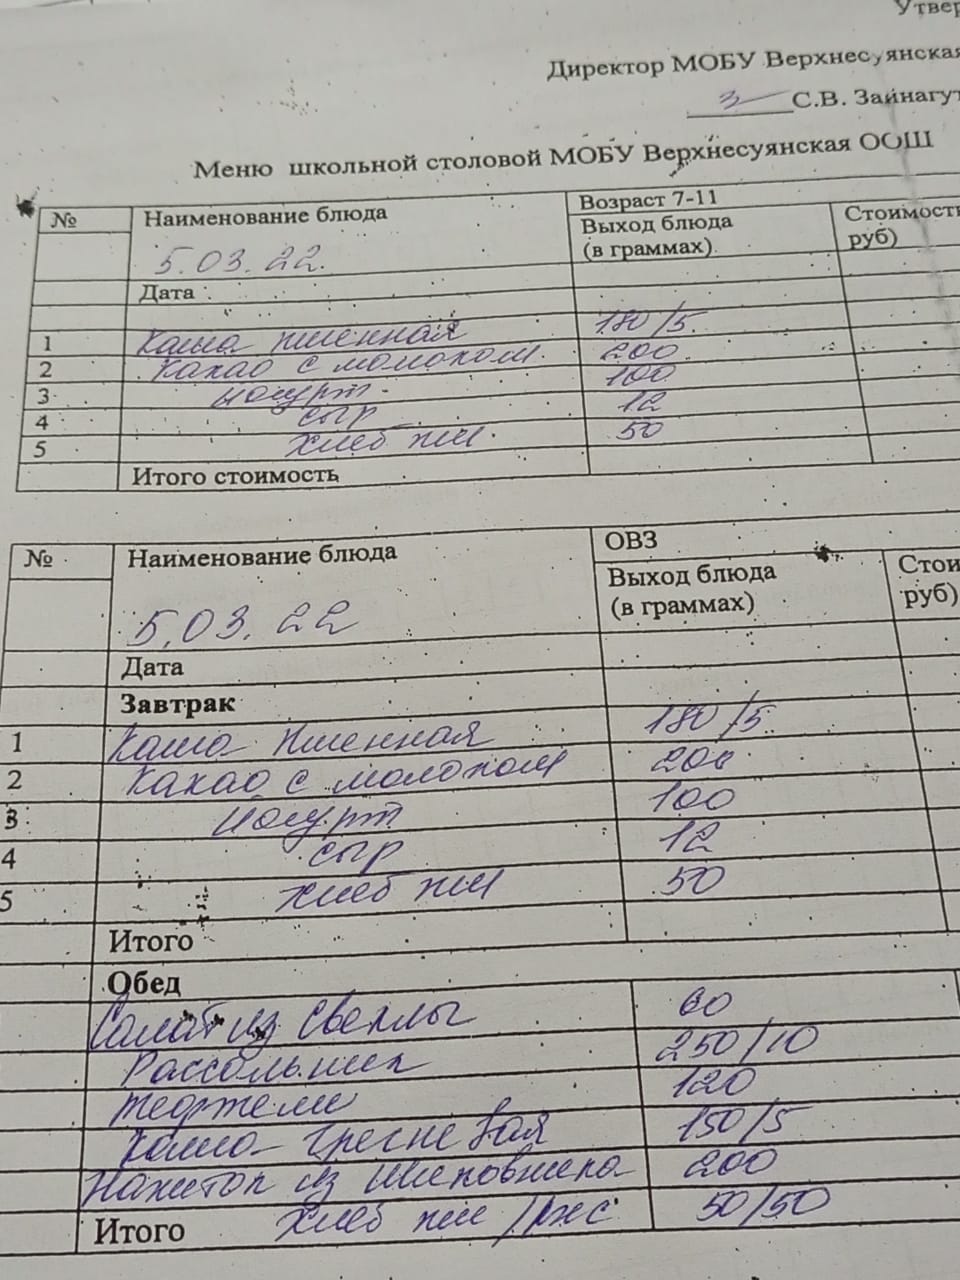 Утвер
Директор МОБУ Верхнесуянская
С.В. Зайнагут
Меню школьной столовой МОБУ Верхнесуянская ООШ
№ Наименование блюда Возраст 7-11
Выход блюда (в граммах) Стоимость руб)
5.03.22.
Дата
1 Каша пшенная 180/5
2 Какао с молоком. 200
3 йогурт. 100
4 сыр 12
5 хлеб пш. 50
Итого стоимость
№ Наименование блюда ОВЗ
Выход блюда (в граммах) Стои руб)
5.03.22
Дата
Завтрак
1 Каша пшенная 180/5
2 Какао с молоком 200
3 йогурт 100
4 сыр 12
5 хлеб пш 50
Итого
Обед
Салат из свеклы 60
Рассольник 250/10
тефтели 120
Каша гречневая 150/5
Напиток из шиповника 200
Итого хлеб пш/ржс 50/50